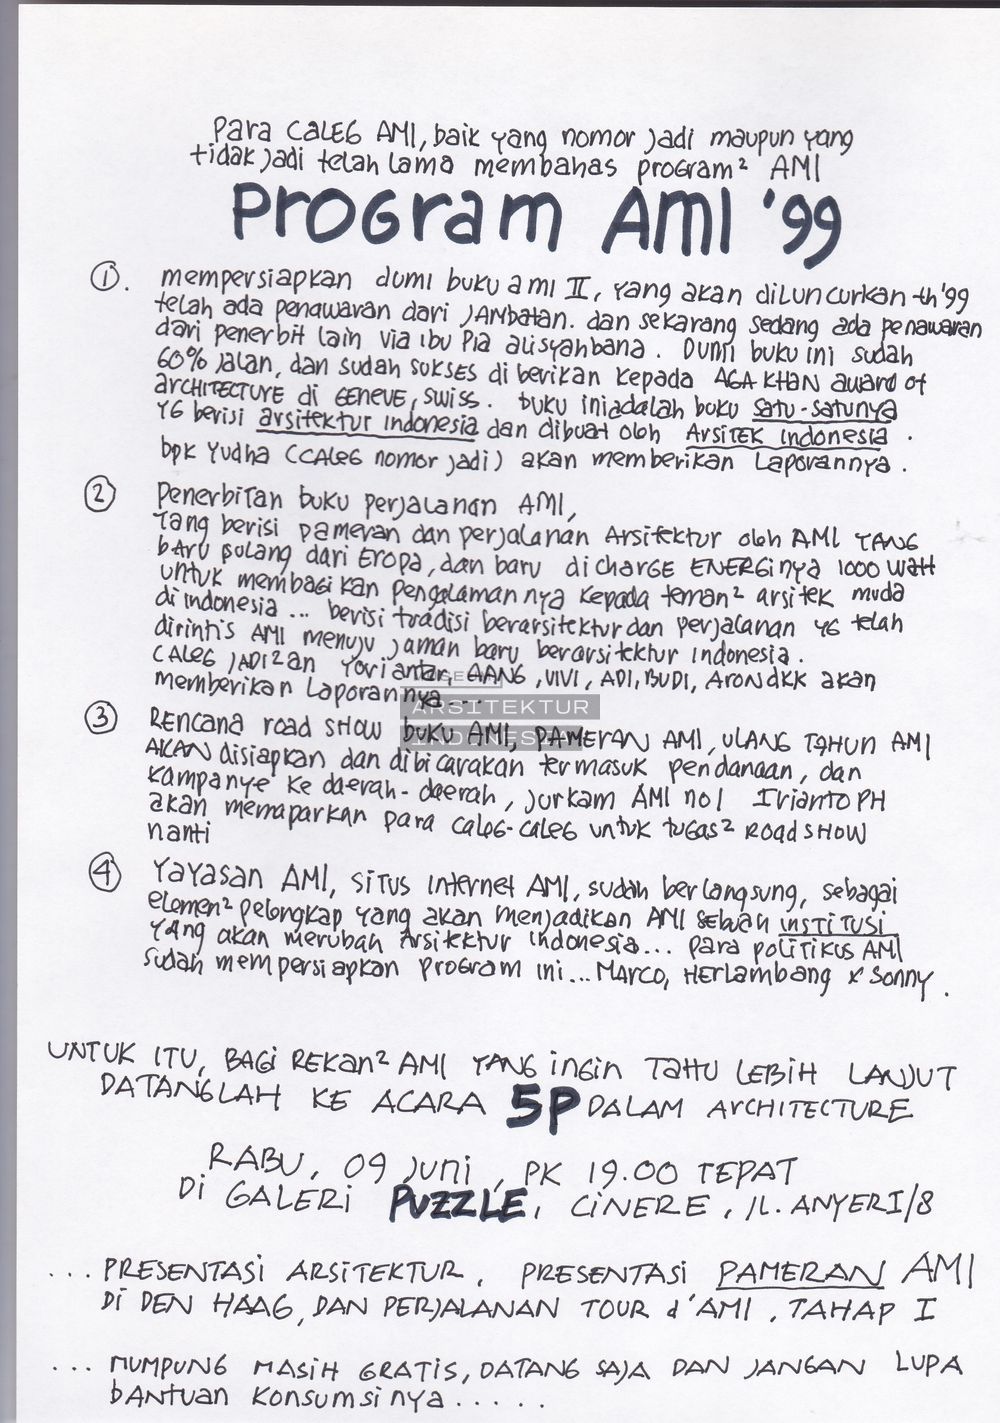 Para CALEG AMI, baik yang nomor jadi maupun yang
tidak jadi telah lama membahas program² AMI
PROGRAM AMI '99
①. mempersiapkan dumi buku ami II, yang akan diluncurkan th '99
telah ada penawaran dari JAMBATAN. dan sekarang sedang ada penawaran
dari penerbit lain via ibu Pia alisyahbana. Dumi buku ini sudah
60% jalan, dan sudah SUKSES di berikan kepada AGA KHAN award of
ARCHITECTURE di GENEVE, SWISS. buku iniadalah buku satu-satunya
YG berisi arsitektur indonesia dan dibuat oleh ARSITEK indonesia.
bpk Yudha (CALEG nomor jadi) akan memberikan Laporannya.
② Penerbitan buku perjalanan AMI,
Yang berisi pameran dan perjalanan Arsitektur oleh AMI YANG
baru pulang dari EROPA, dan baru di CHARGE ENERGInya 1000 watt
untuk membagikan pengalamannya kepada teman² arsitek muda
di indonesia ... berisi tradisi berarsitektur dan perjalanan YG telah
dirintis AMI menuju jaman baru berarsitektur indonesia.
CALEG JADI2an Yoriantar, AANG, VIVI, ADI, BUDI, Aron dkk akan
memberikan Laporannya ...
ARSITEKTUR
INDONESIA
③ Rencana road SHOW buku AMI, PAMERAN AMI, ULANG TAHUN AMI
AKAN disiapkan dan dibicarakan termasuk pendanaan, dan
kampanye ke daerah-daerah, jurkam AMI no 1 Irianto PH
akan memaparkan para caleg-caleg untuk tugas² ROAD SHOW
nanti
④ Yayasan AMI, SITUS Internet AMI, sudah berlangsung, sebagai
elemen² pelengkap yang akan menjadikan AMI sebuah INSTITUSI
YANG akan merubah Arsitektur Indonesia... para politikus AMI
sudah mempersiapkan program ini... MARCO, HERLAMBANG & Sonny.
UNTUK ITU, BAGI REKAN² AMI YANG ingin TAHU LEBIH LANJUT
DATANGLAH KE ACARA 5P DALAM ARCHITECTURE
RABU, 09 JUNI, PK 19.00 TEPAT
Di GALERi PUZZLE, CiNERE, JL. ANYER I/8
... PRESENTASI ARSITEKTUR, PRESENTASI PAMERAN AMI
DI DEN HAAG, DAN PERJALANAN TOUR d'AMI, TAHAP I
... MUMPUNG MASIH GRATIS, DATANG SAJA DAN JANGAN LUPA
bantuan konsumsinya .....